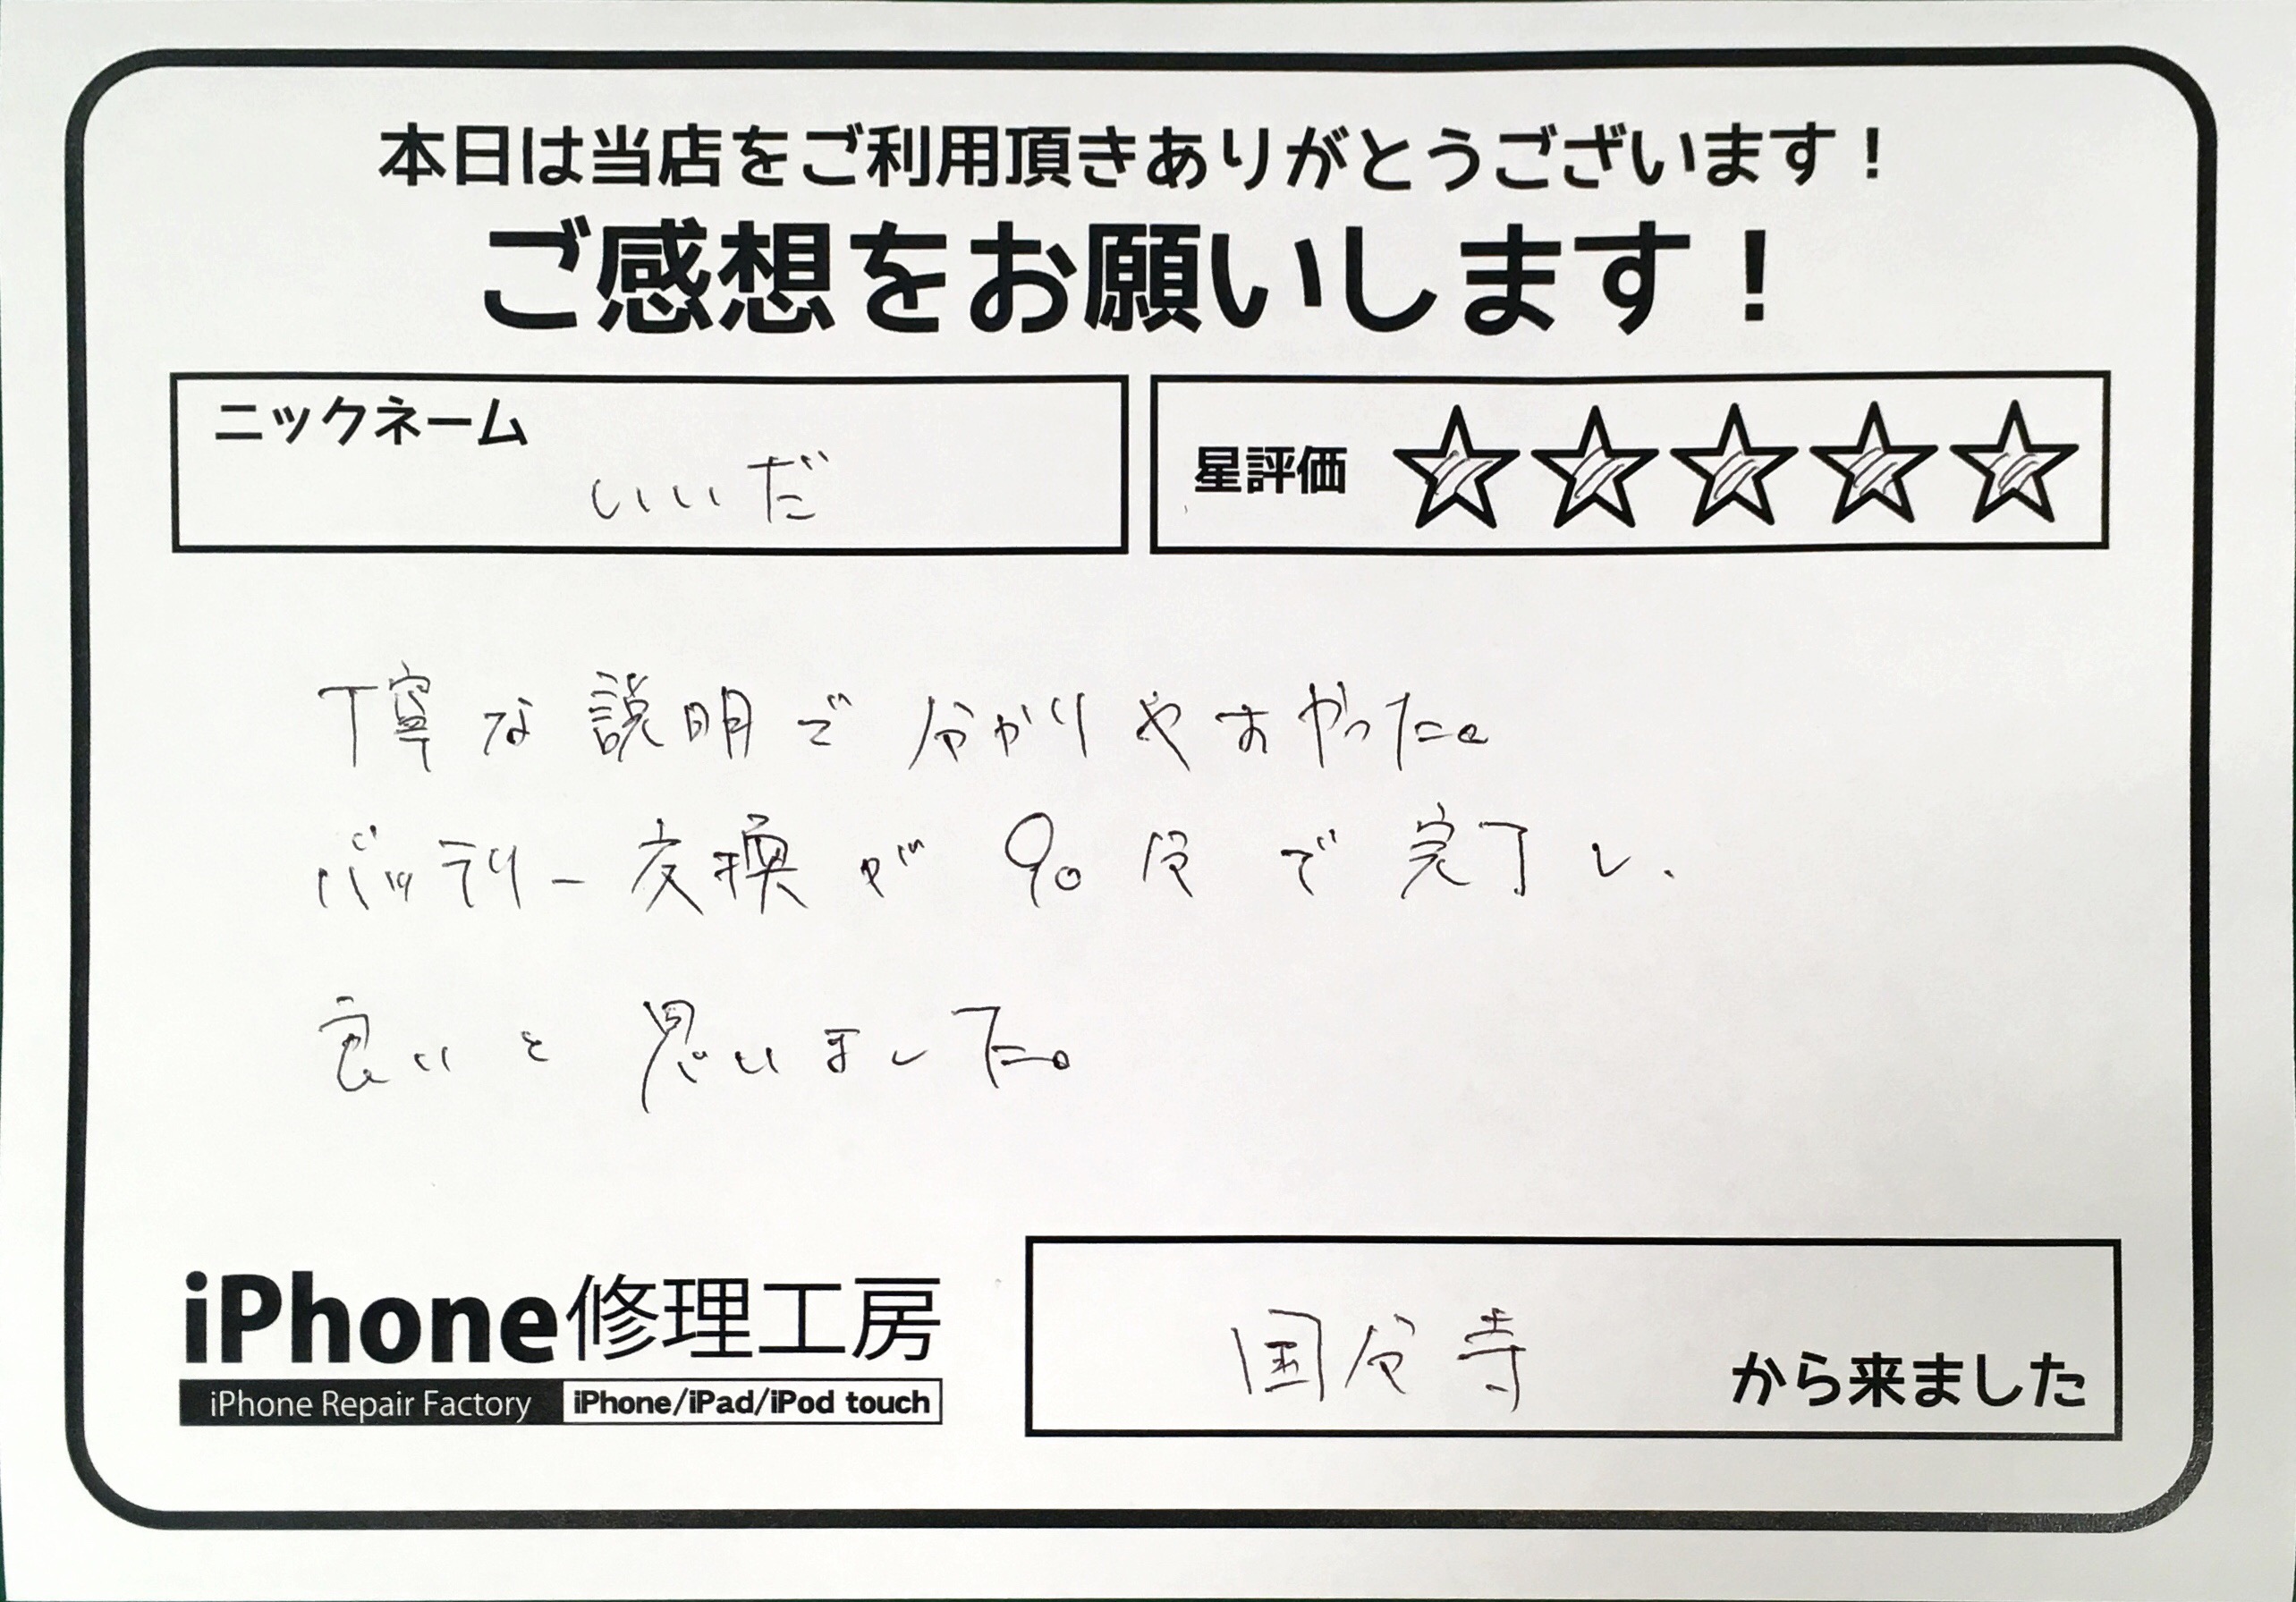 本日は当店をご利用頂きありがとうございます！
ご感想をお願いします！
ニックネーム
いいだ
星評価 ☆☆☆☆☆
丁寧な説明で分かりやすかった。
バッテリー交換が90分で完了し、
良いと思いました。
iPhone修理工房
iPhone Repair Factory iPhone/iPad/iPod touch
国分寺 から来ました